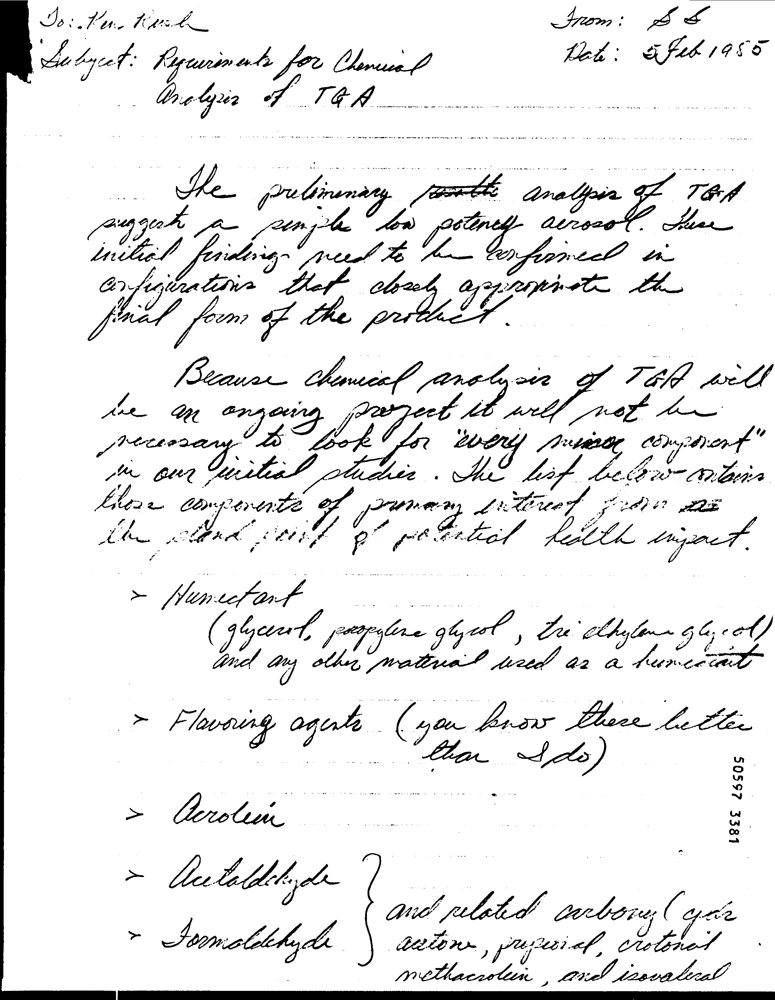 To: Ken Rush
From: S S
Subject: Requirements for Chemical
Date: 5 Feb 1985
Analysis of TGA
The preliminary analysis of TGA
suggests a simple low potency aerosol. These
initial findings need to be confirmed in
configurations that closely approximate the
final form of the product.
Because chemical analysis of TGA will
be an ongoing project it will not be
necessary to look for "every minor component"
in our initial studies. The list below contains
those components of primary interest from
the stand point of potential health impact.
> Humectant
(glycerol, propylene glycol, triethylene glycol)
and any other material used as a humectant
> Flavoring agents (you know these better
than I do)
> Acrolein
> Acetaldehyde
> Formaldehyde
and related carbonyl
acetone, propional, crotonal
methacrolein, and isovaleral
50597 3381